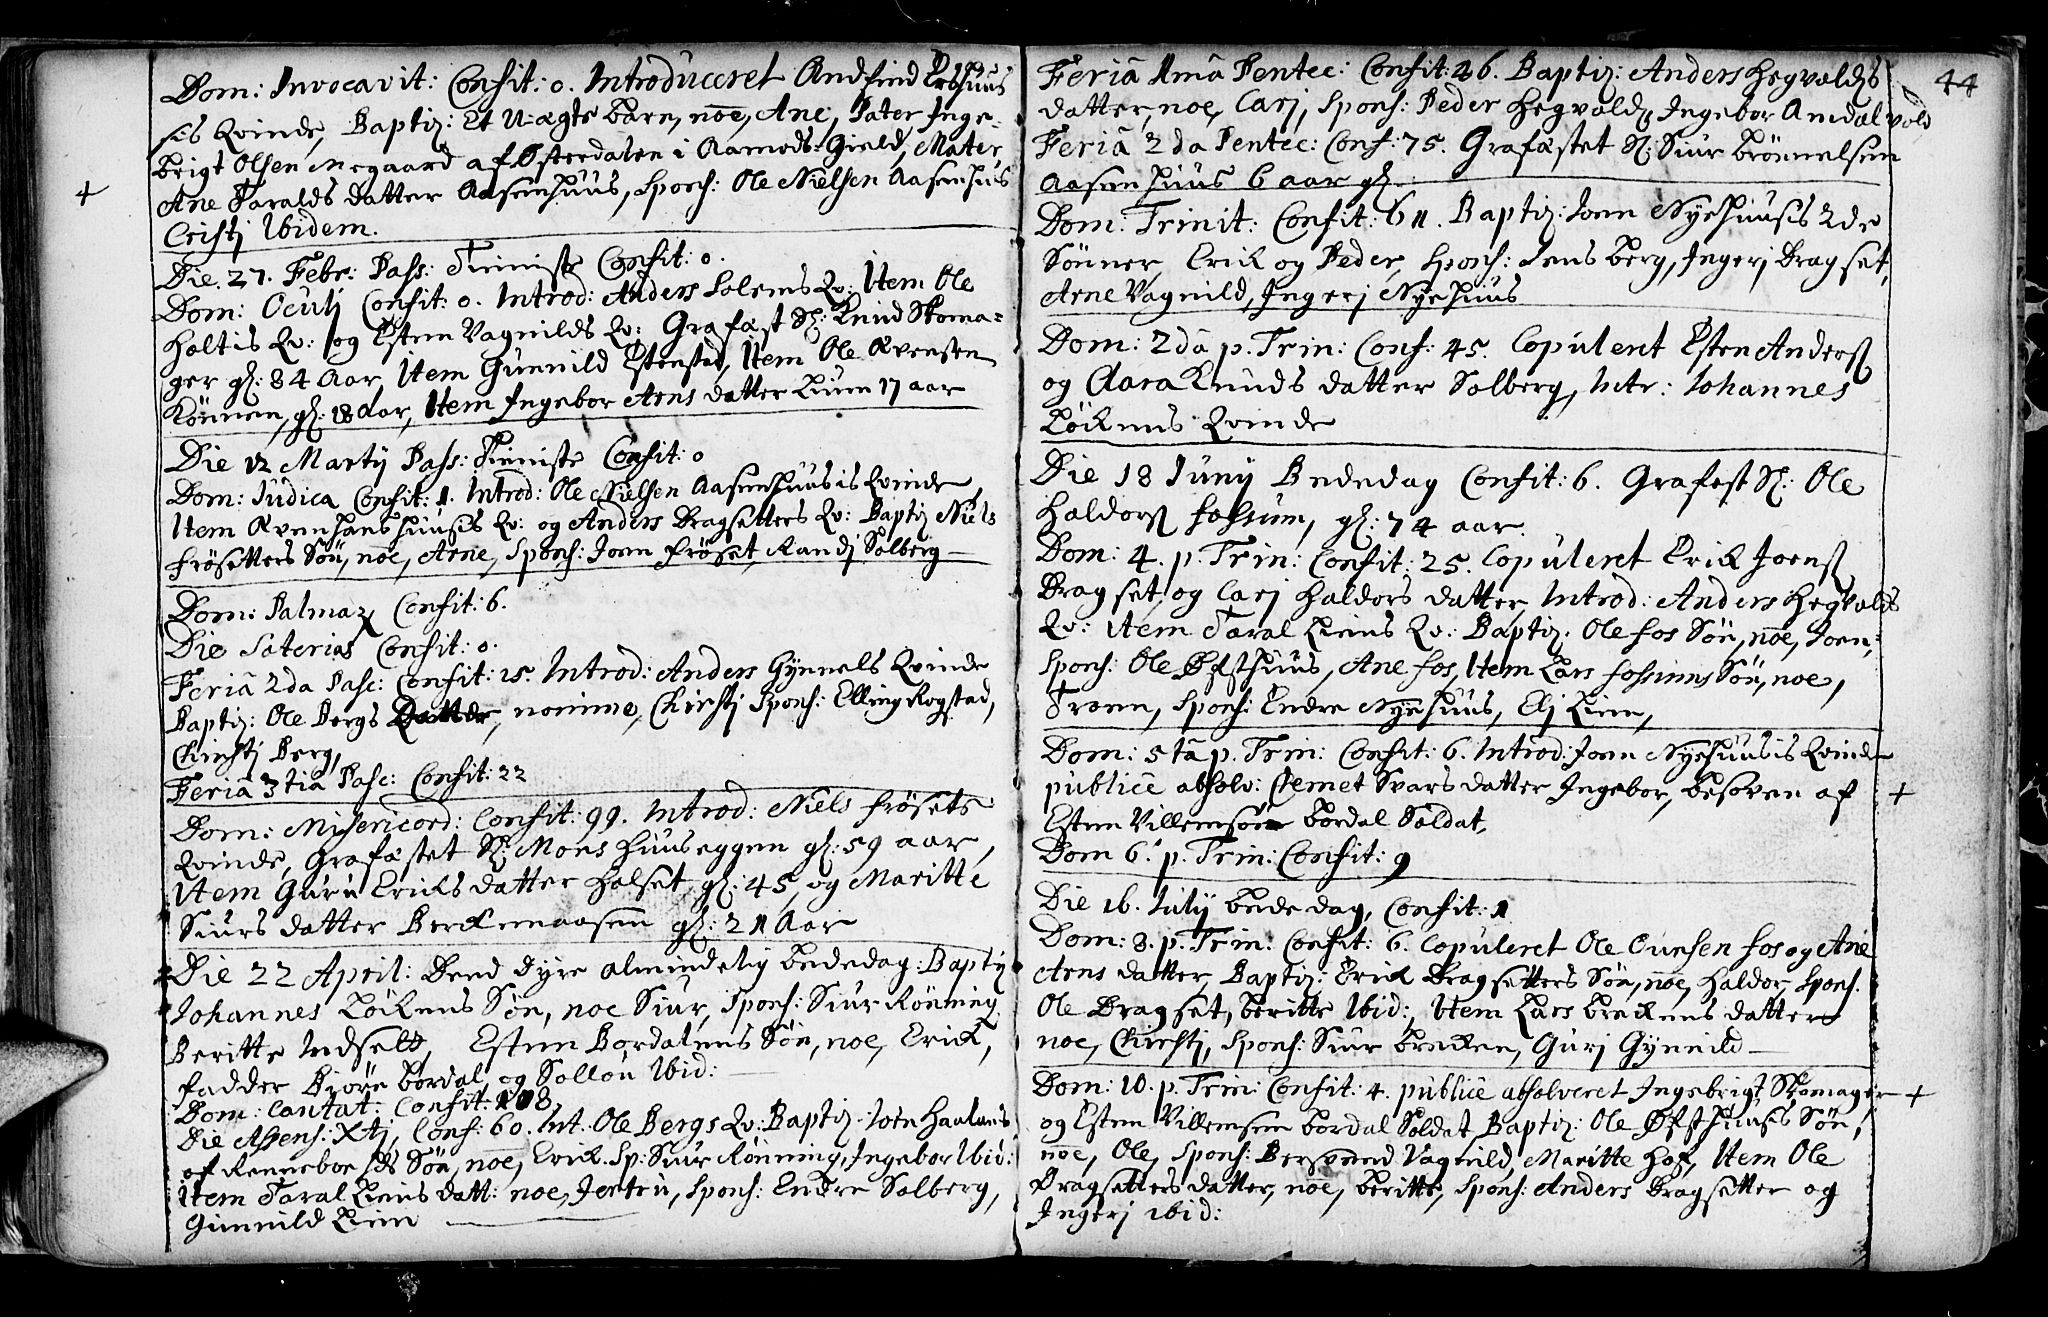 Dom: Invocavit: Confit: 0. Introduceret Andfind
sis Qvinde, Baptiz: Et U-ægte barn, noe, Ane, Pater Inge-
brigt Olsen Megaard af Østerdalen i Aamods-Gield, Mater
+ Ane Taralds datter Aasenhuus, Spons: Ole Nielsen Aasenhuus
Cristj Ibidem.
Die 27. Febr: Pass: Tieniste Confit: 0.
Dom: Oculj Confit: 0. Introd: Anders Solems Qv: Item Ole
Holtis Qv: og Esten Vagnilds Qv: Grafæst Sl: Knud Skoma-
ger gl: 84 Aar, Item Gunnild Estensted, Item Ole Evensen
Rönnen, gl: 18 Aar, Item Ingebor Arns datter Liun 17 aar
Die 12 Martij Pass: Tieniste Confit: 0
Dom: Judica Confit: 1. Introd: Ole Nielsen Aasenhuusis Qvinde,
Item Evenhaushuusis Qv: og Anders Dragsetters Qv: Baptiz Niels
Frösetters Sön, noe, Arne, Spons: Joen Fröset, Randj Solberg
Dom: Palmaz Confit: 6.
Die Saterias Confit: 0.
Feria 2da Pasc: Confit: 15. Introd: Anders Gynnels Qvinde
Baptiz: Ole Bergs Datter, nomine, Chirstj Spons: Elling Rogstad,
Chirstj Berg,
Feria 3tia Pasc: Confit: 22
Dom: Misericord: Confit: 99. Introd: Niels Frösets
Qvinde, Grafæstet Sl: Mons Huuseggen gl: 59 aar,
Item Guru Ericks datter Halset gl: 45, og Maritte
Siurs datter Berckemaasen gl: 21 Aar
Die 22 April: Dend dyre almindelig bededag: Baptiz
Johannes Löckens Sön, noe Siur, Spons: Siur Rönning,
Beritte Indsett, Esten Bordalens Sön, noe, Erick,
fadder Biörn bordal og Sollou Ibid:
Dom: Cantat: Confit: 108,
Die Asens: Xtj, Conf: 60. Int. Ole Bergs Qv: Baptiz: Joen Haalans
af Renneboe Sön, noe, Erick. Sp: Siur Rönning, Ingebor Ibid:
Item Taral Liens datt: noe, Jertru, Spons: Endre Solberg,
Gunnild Lium
44
Feriâ 1mâ Pentec: Confit: 26. Baptiz: Anders Hegvalds
datter, noe, Carj, Spons: Peder Hegvald, Ingebor Amdalvold
Feriâ 2da Pentec: Conf: 75. Grafæstet Sl: Siur Brönnelsen
Aasenhuus 6 aar gl.
Dom: Trinit: Confit: 61. Baptiz: Joen Nyehuusis 2de
Sönner, Erick og Peder, Spons: Jens Berg, Ingerj Dragset,
Arne Vagnild, Ingerj Nyehuus
Dom: 2dâ p. Trin: Conf: 45. Copulent Esten Anders
og Clara Knuds datter Solberg, Intr: Johannes
Löckens Qvinde
Die 18 Junij Bededag Confit: 6. Grafest Sl: Ole
Haldors Fossum, gl: 74 aar.
Dom: 4. p. Trin: Confit: 25. Copuleret Erick Joens
Dragset, og Carj Haldors datter, Introd: Anders Hegvalds
Qv: Item Taral Liens Qv: Baptiz: Ole Fos Sön, noe, Joen,
Spons: Ole Øfsthuus, Ane Fos, Item Lars Fossums Sön, noe,
Tronn, Spons: Endre Nyehuus, Elj Lien,
Dom: 5tâ p. Trin: Confit: 6. Introd: Joen Nyehuusis Qvinde
publicè absolv: Clemet Svars datter Ingebor, besoven af +
Esten Villemsön Bordal Soldat,
Dom 6. p. Trin: Confit: 9
Die 16. Julij bededag, Confit: 1
Dom: 8. p. Trin: Confit: 6. Copuleret Ole Ounsen Fos og Ane
Arns datter, Baptiz: Erick Dragsetters Sön, noe, Haldor, Spons.
Ole Dragset, beritte Ibid:, Item Lars breckens datter
noe, Chirstj, Spons: Siur brecken, Gurj Gynnild
Dom: 10. p. Trin: Confit: 4. publicè absolveret Ingebrigt Skomager +
og Esten Villemsen bordal Soldat, Baptiz: Ole Øfsthuuses Sön,
noe, Ole, Spons: Bersvend Vagnild, Maritte Hof, Item Ole
Dragsetters datter, noe, beritte, Spons: Anders Dragsetter og
Ingerj ibid: